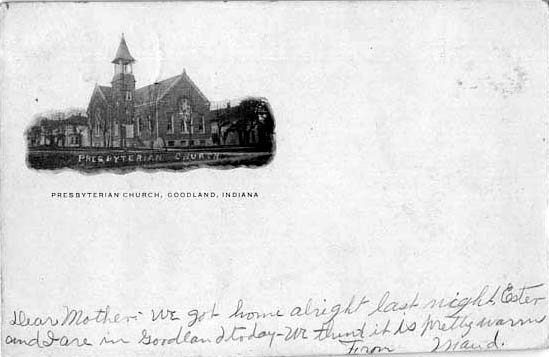 PRESBYTERIAN CHURCH
PRESBYTERIAN CHURCH, GOODLAND, INDIANA
Dear Mother:- We got home alright last night, Ester
and I are in Goodland today - We think it is pretty warm
From Maud.